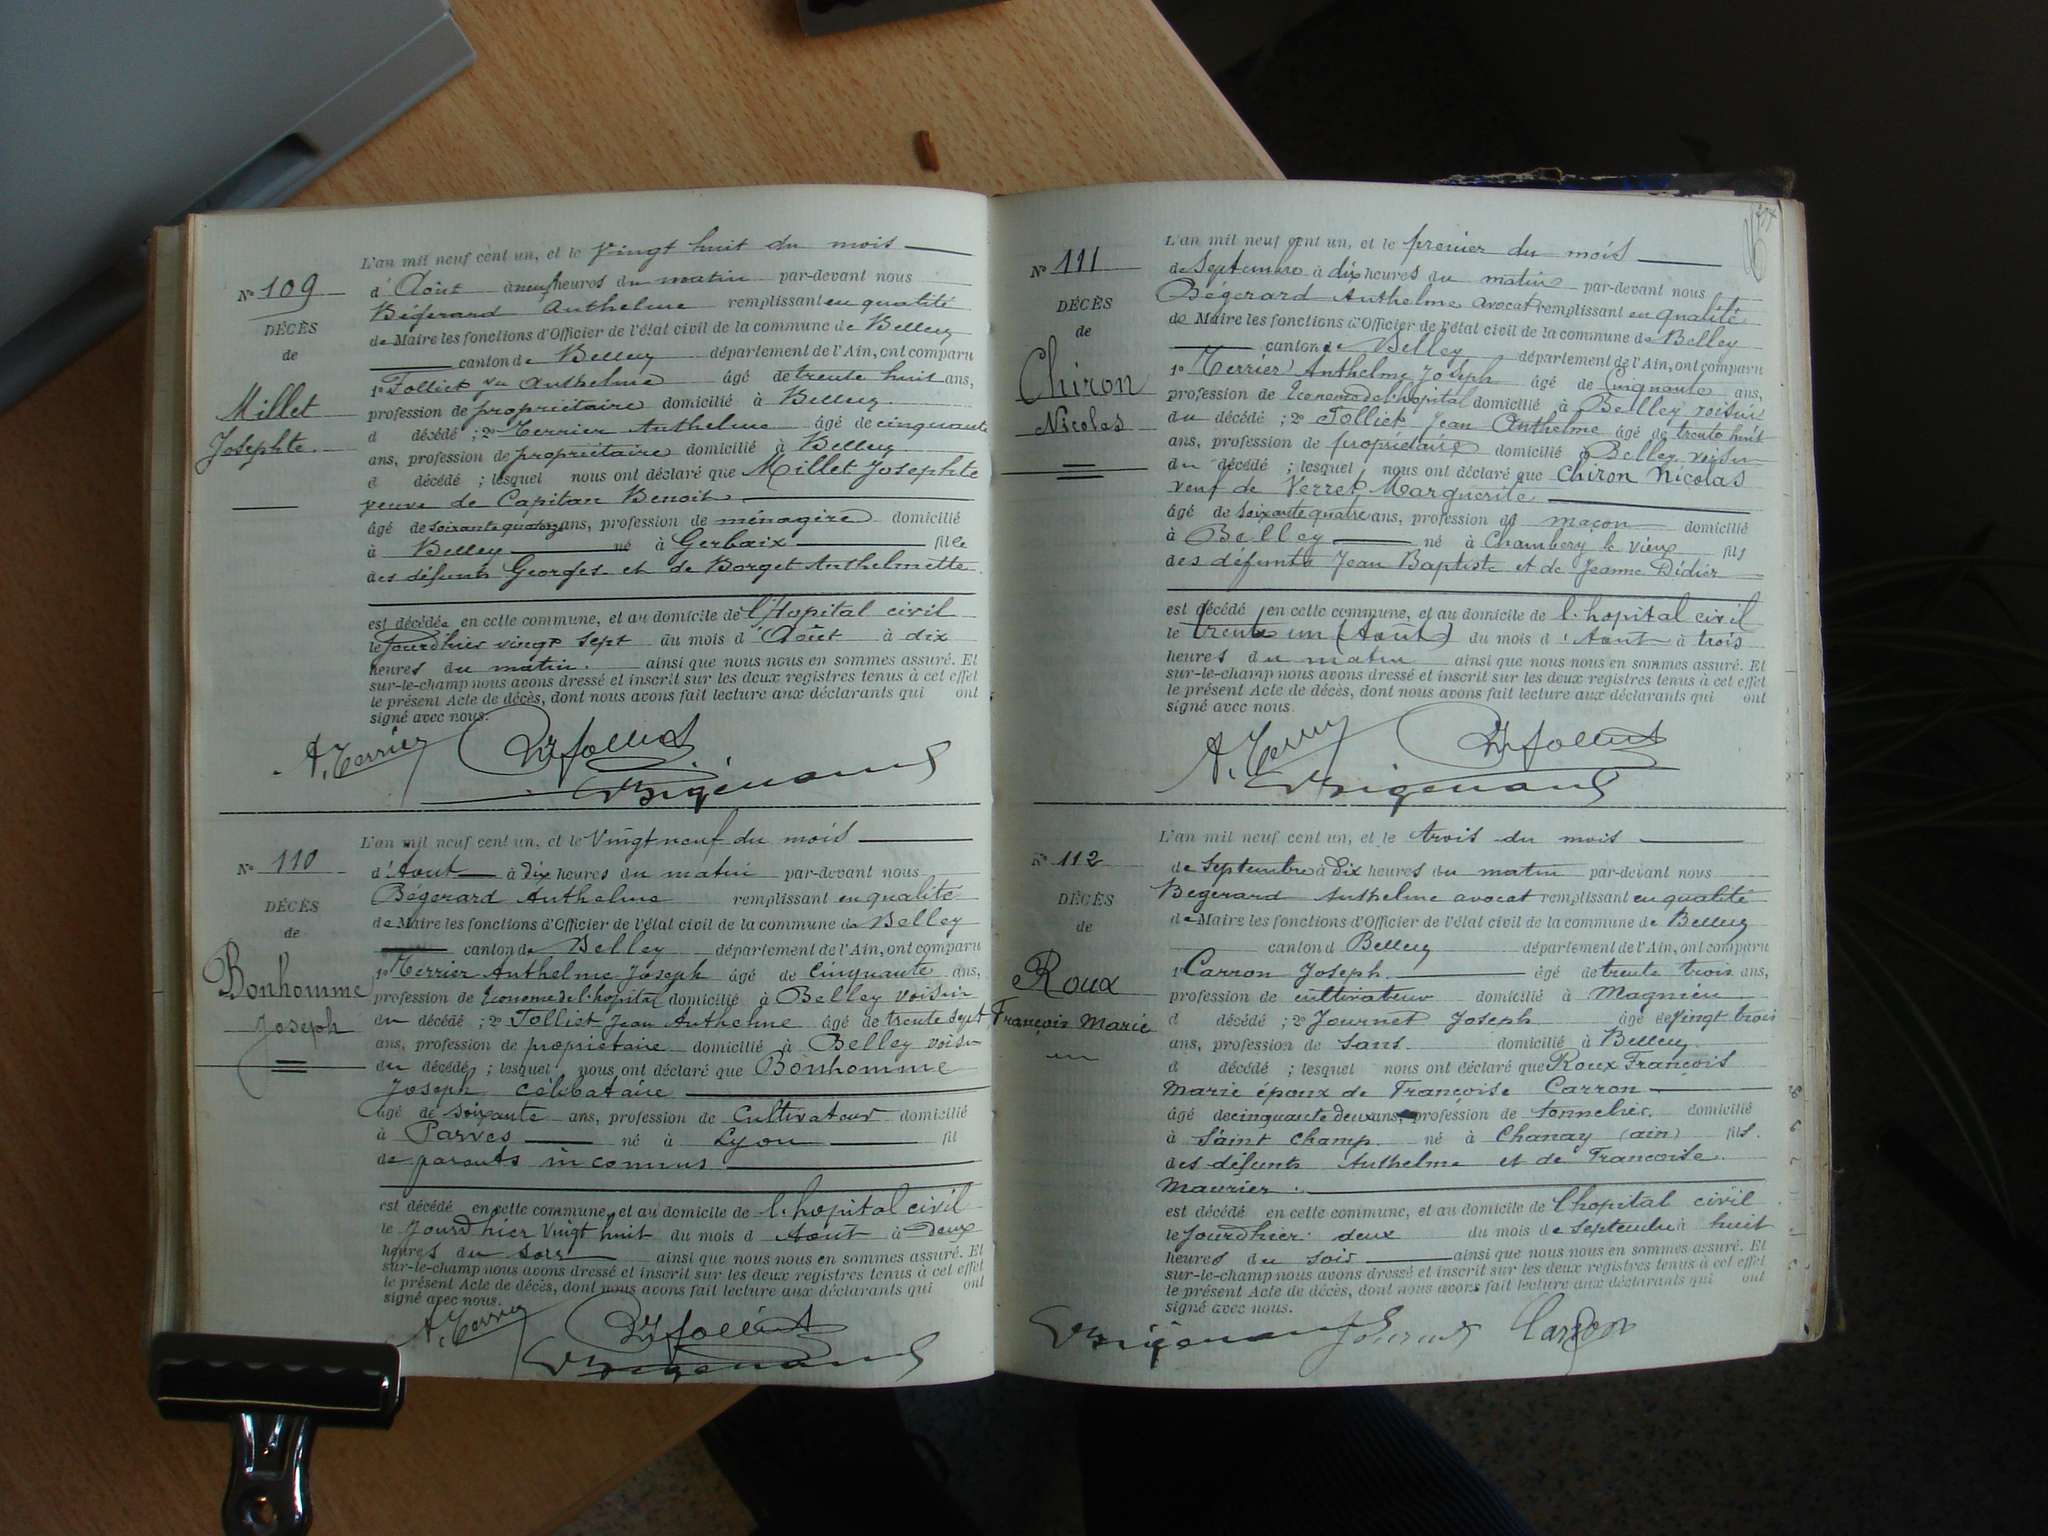 L'an mil neuf cent un, et le Vingt huit du mois
N° 109
d'Août à neuf heures du matin par-devant nous
Bégerard Anthelme remplissant en qualité
DÉCÈS
de Maire les fonctions d'Officier de l'état civil de la commune de Belley
de
canton de Belley département de l'Ain, ont comparu
1° Folliet Anthelme âgé de trente huit ans,
Millet
profession de propriétaire domicilié à Belley
d décédé ; 2° Terrier Anthelme âgé de cinquante
Josephte
ans, profession de propriétaire domicilié à Belley
d décédé ; lesquel nous ont déclaré que Millet Josephte
veuve de Capitan Benoit
âgé de soixante quatorze ans, profession de ménagère domicilié
à Belley né à Gerbaix fille
des défunts Georges et de Borget Anthelmette
est décédée en cette commune, et au domicile de l'Hopital civil
le Jourdhier vingt sept du mois d'Août à dix
heures du matin. ainsi que nous nous en sommes assuré. Et
sur-le-champ nous avons dressé et inscrit sur les deux registres tenus à cet effet
le présent Acte de décès, dont nous avons fait lecture aux déclarants qui ont
signé avec nous.
A. Terrier Folliet
L'an mil neuf cent un, et le Vingt neuf du mois
N° 110
d'Aout à dix heures du matin par-devant nous
Bégerard Anthelme remplissant en qualité
DÉCÈS
de Maire les fonctions d'Officier de l'état civil de la commune de Belley
de
canton de Belley département de l'Ain, ont comparu
1° Terrier Anthelme Joseph âgé de Cinquante ans,
Bonhomme
profession de Econome de l'hopital domicilié à Belley voisin
du décédé ; 2° Folliet Jean Anthelme âgé de trente sept
Joseph
ans, profession de propriétaire domicilié à Belley voisin
du décédé ; lesquel nous ont déclaré que Bonhomme
Joseph célibataire
âgé de soixante ans, profession de Cultivateur domicilié
à Parves né à Lyon fil
de parents inconnus
est décédé en cette commune, et au domicile de l'hopital civil
le Jourd'hier Vingt huit du mois d Août à Deux
heures du soir ainsi que nous nous en sommes assuré. Et
sur-le-champ nous avons dressé et inscrit sur les deux registres tenus à cet effet
le présent Acte de décès, dont nous avons fait lecture aux déclarants qui ont
signé avec nous.
A. Terrier Folliet
L'an mil neuf cent un, et le premier du mois
N° 111
de Septembre à dix heures du matin par-devant nous
Bégerard Anthelme avocat remplissant en qualité
DÉCÈS
de Maire les fonctions d'Officier de l'état civil de la commune de Belley
de
canton de Belley département de l'Ain, ont comparu
1° Terrier Anthelme Joseph âgé de Cinquante ans,
Chiron
profession de Econome de l'hopital domicilié à Belley voisin
du décédé ; 2° Folliet Jean Anthelme âgé de trente huit
Nicolas
ans, profession de propriétaire domicilié à Belley voisin
du décédé ; lesquel nous ont déclaré que Chiron Nicolas
veuf de Verret Marguerite
âgé de soixante quatre ans, profession de maçon domicilié
à Belley né à Chambery le vieux fils
des défunts Jean Baptiste et de Jeanne Didier
est décédé en cette commune, et au domicile de l'hopital civil
le trente un (Aout) du mois d'Aout à trois
heures du matin ainsi que nous nous en sommes assuré. Et
sur-le-champ nous avons dressé et inscrit sur les deux registres tenus à cet effet
le présent Acte de décès, dont nous avons fait lecture aux déclarants qui ont
signé avec nous.
A. Terrier Folliet
L'an mil neuf cent un, et le trois du mois
N° 112
de septembre à Dix heures du matin par-devant nous
Begerard Anthelme avocat remplissant en qualité
DÉCÈS
de Maire les fonctions d'Officier de l'état civil de la commune de Belley
de
canton d Belley département de l'Ain, ont comparu
1° Carron Joseph âgé de trente trois ans,
Roux
profession de cultivateur domicilié à Magnieu
d décédé ; 2° Journet Joseph âgé de vingt trois
François Marie
ans, profession de sans domicilié à Belley
d décédé ; lesquel nous ont déclaré que Roux François
Marie époux de Françoise Carron
âgé de cinquante deux ans, profession de tonnelier domicilié
à Saint Champ né à Chanay (ain) fils
des défunts Anthelme et de Francoise
Maurier
est décédé en cette commune, et au domicile de l'hopital civil
le Jourdhier deux du mois de septembre à huit
heures du soir ainsi que nous nous en sommes assuré. Et
sur-le-champ nous avons dressé et inscrit sur les deux registres tenus à cet effet
le présent Acte de décès, dont nous avons fait lecture aux déclarants qui ont
signé avec nous.
Journet Carron